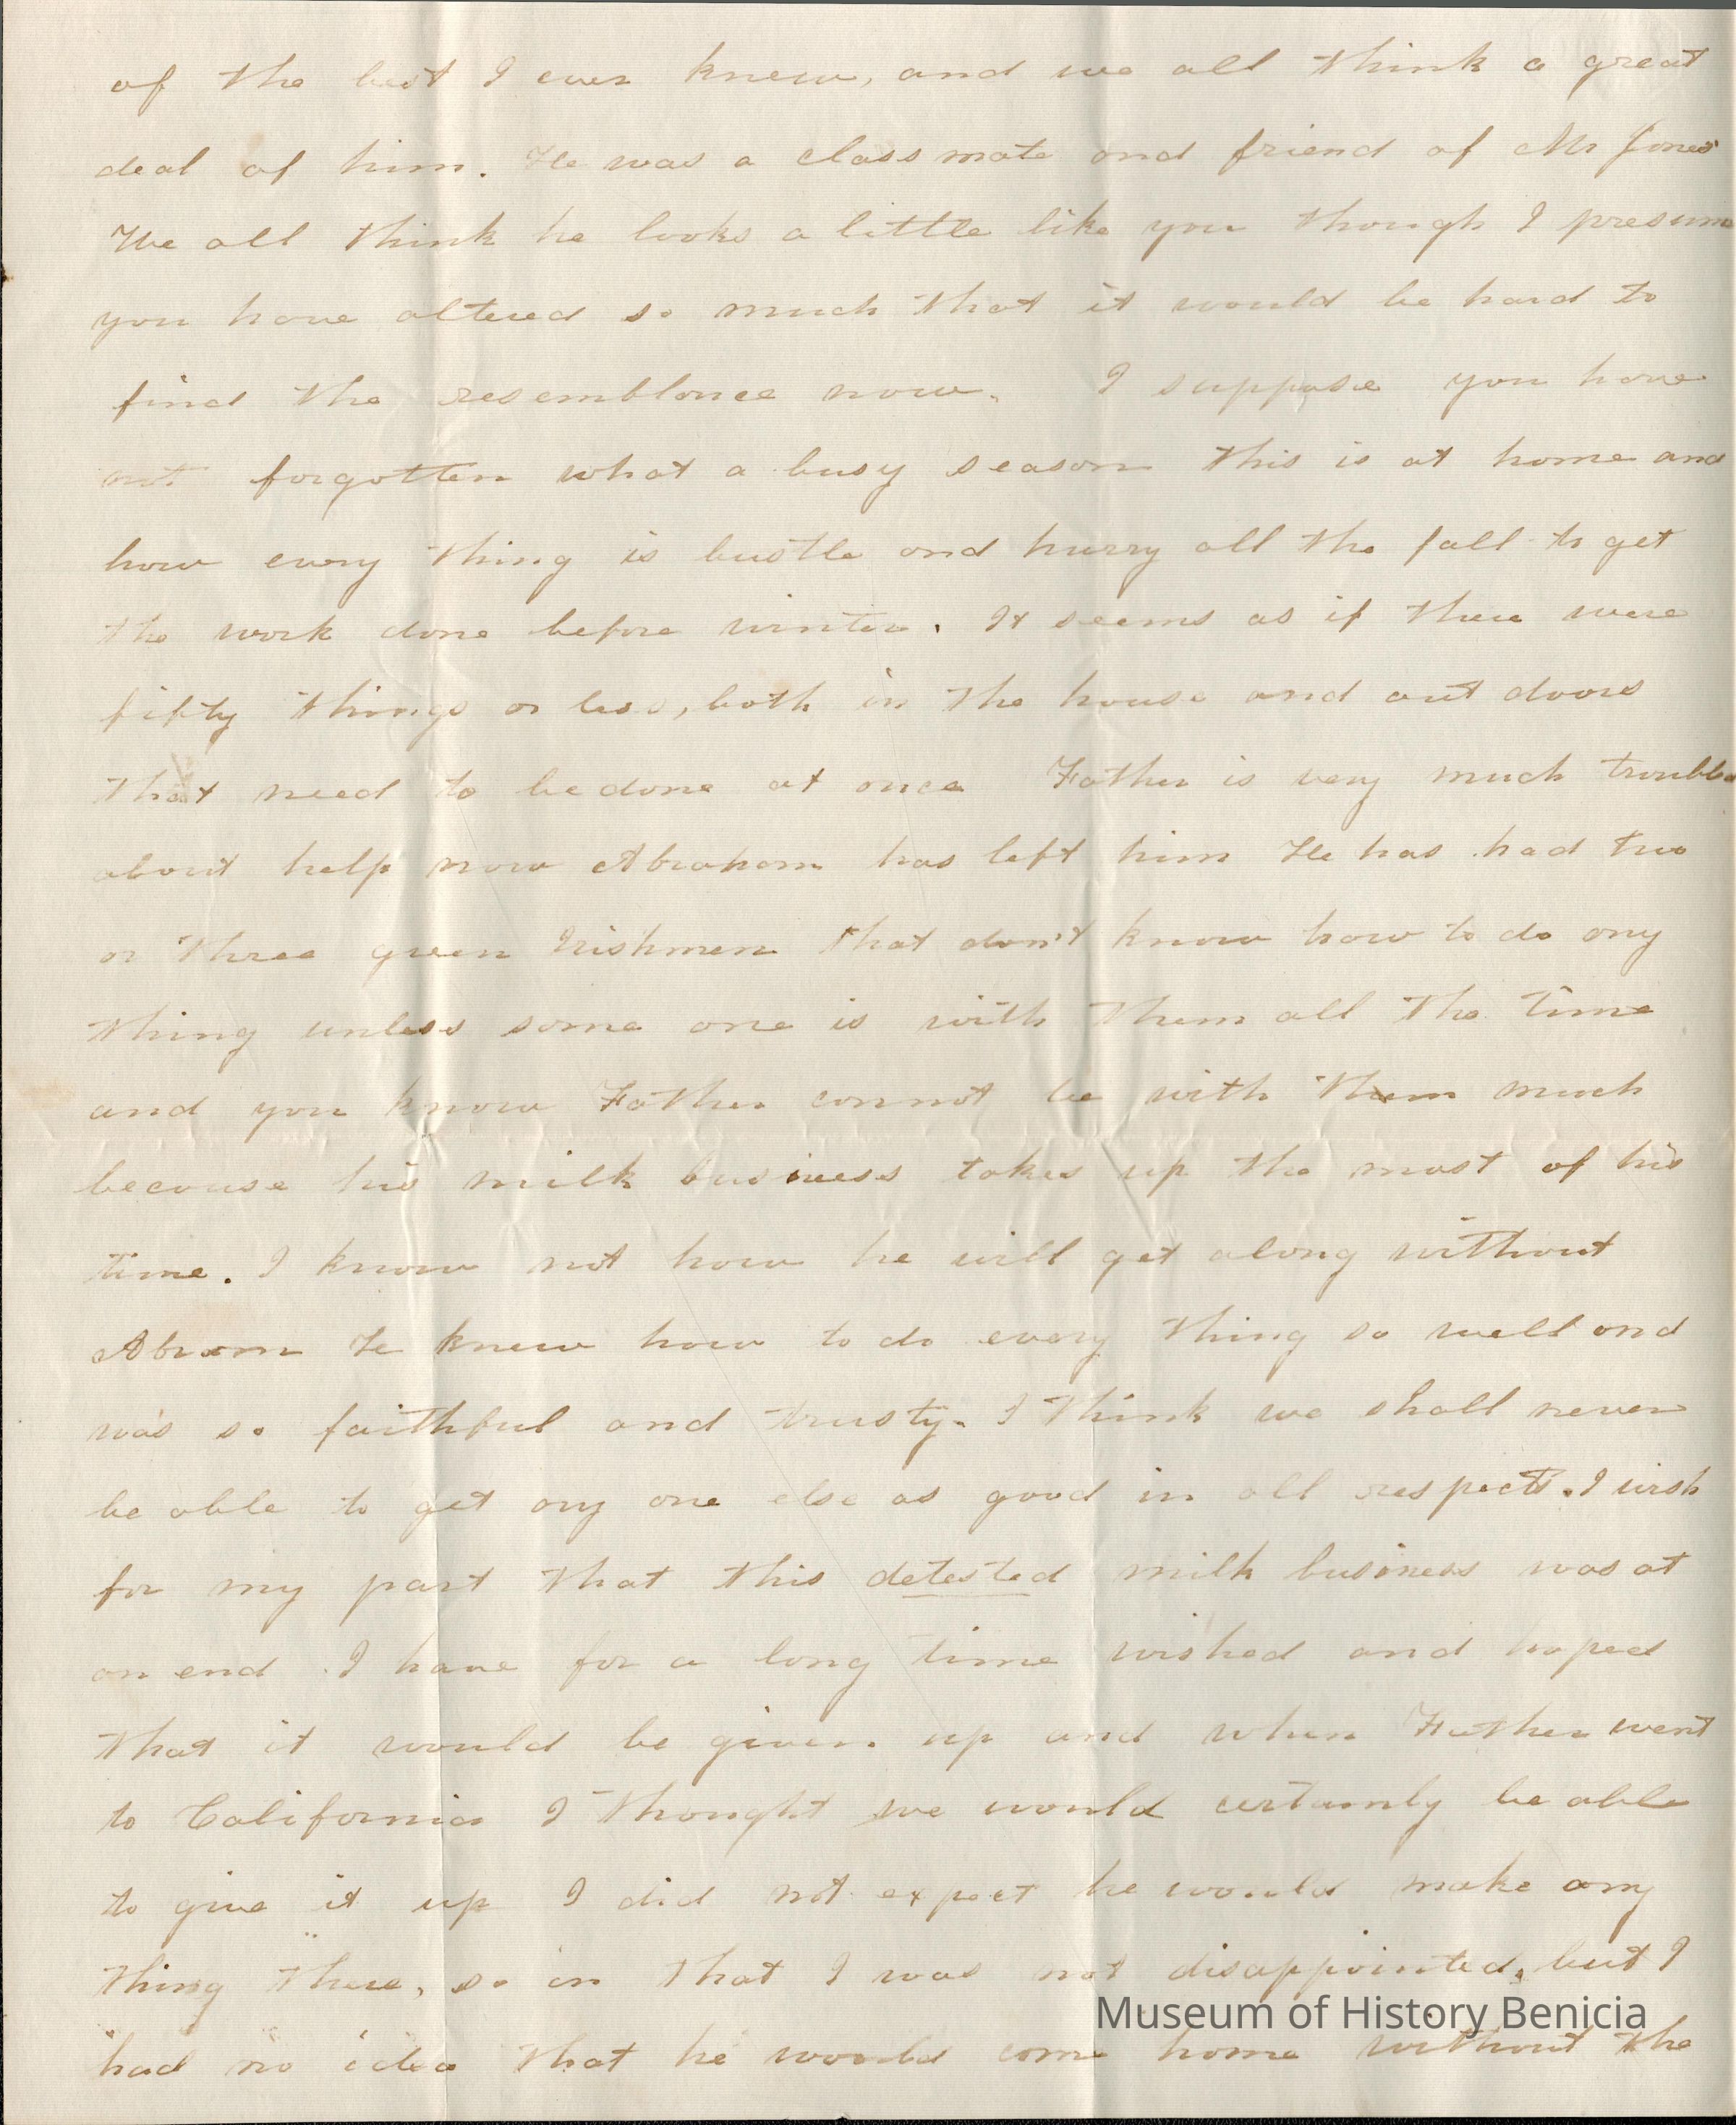 of the best I ever knew, and we all think a great
deal of him. He was a classmate and friend of Mr Jones
We all think he looks a little like you though I presume
you have altered so much that it would be hard to
find the resemblance now. I suppose you have
not forgotten what a busy season this is at home and
how every thing is bustle and hurry all the fall to get
the work done before winter. It seems as if there were
fifty things or less, both in the house and out doors
that need to be done at once Father is very much troubled
about help now Abraham has left him He has had two
or three green Irishmen that don't know how to do any
thing unless some one is with them all the time
and you know Father cannot be with them much
because his milk business takes up the most of his
time. I know not how he will get along without
Abram He knew how to do every thing so well and
was so faithful and trusty. I think we shall never
be able to get any one else as good in all respects. I wish
for my part that this detested milk business was at
an end. I have for a long time wished and hoped
that it would be given up and when Father went
to California I thought we would certainly be able
to give it up I did not expect he would make any
thing there, so in that I was not disappointed, but I
Museum of History Benicia
had no idea that he would come home without the